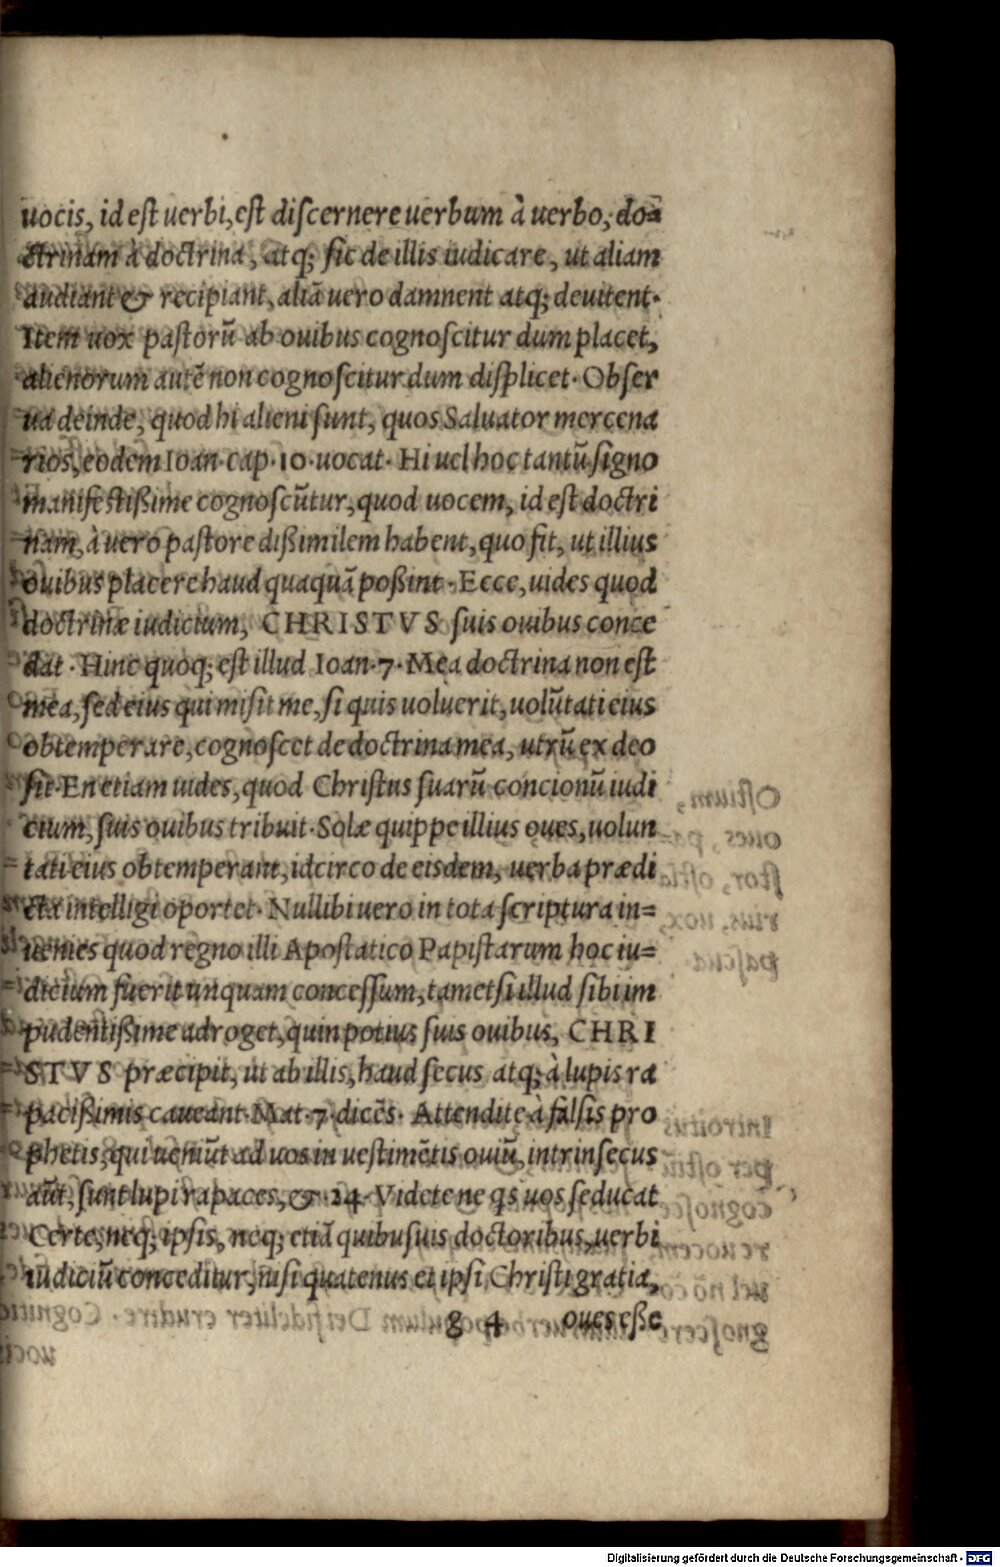 uocis, id est uerbi, est discernere uerbum à uerbo, do=
ctrinam à doctrina, atq; sic de illis iudicare, ut aliam
audiant & recipiant, aliā uero damnent atq; deuitent.
Item uox pastorū ab ouibus cognoscitur dum placet,
alienorum autē non cognoscitur dum displicet. Obser
ua deinde, quod hi alieni sunt, quos Saluator mercena
rios, eodem Ioan. cap. 10. uocat. Hi uel hoc tantū signo
manifestißime cognoscūtur, quod uocem, id est doctri
nam, à uero pastore dißimilem habent, quo fit, ut illius
ouibus placere haud quaquā poßint. Ecce, uides quod
doctrinæ iudicium, CHRISTVS suis ouibus conce
dat. Hinc quoq; est illud Ioan. 7. Mea doctrina non est
mea, sed eius qui misit me, si quis uoluerit, uolūtati eius
obtemperare, cognoscet de doctrina mea, utrū ex deo
sit. En etiam uides, quod Christus suarū concionū iudi
cium, suis ouibus tribuit. Solæ quippe illius oues, uolun
tati eius obtemperant, idcirco de eisdem, uerba prædi
cta intelligi oportet. Nullibi uero in tota scriptura in=
uenies quod regno illi Apostatico Papistarum hoc iu=
dicium fuerit unquam concessum, tametsi illud sibi im
pudentißime adroget, quin potius suis ouibus, CHRI
STVS præcipit, ut ab illis, haud secus atq; à lupis ra
pacißimis caueant. Mat. 7. dicēs. Attendite à falsis pro
phetis, qui ueniūt ad uos in uestimētis ouiū, intrinsecus
aūt, sunt lupi rapaces, & 24. Videte ne qs uos seducat
Certe, neq; ipsis, neq; etiā quibusuis doctoribus, uerbi
iudiciū conceditur, nisi quatenus et ipsi Christi gratia,
g 4 oues eße
Digitalisierung gefördert durch die Deutsche Forschungsgemeinschaft - DFG